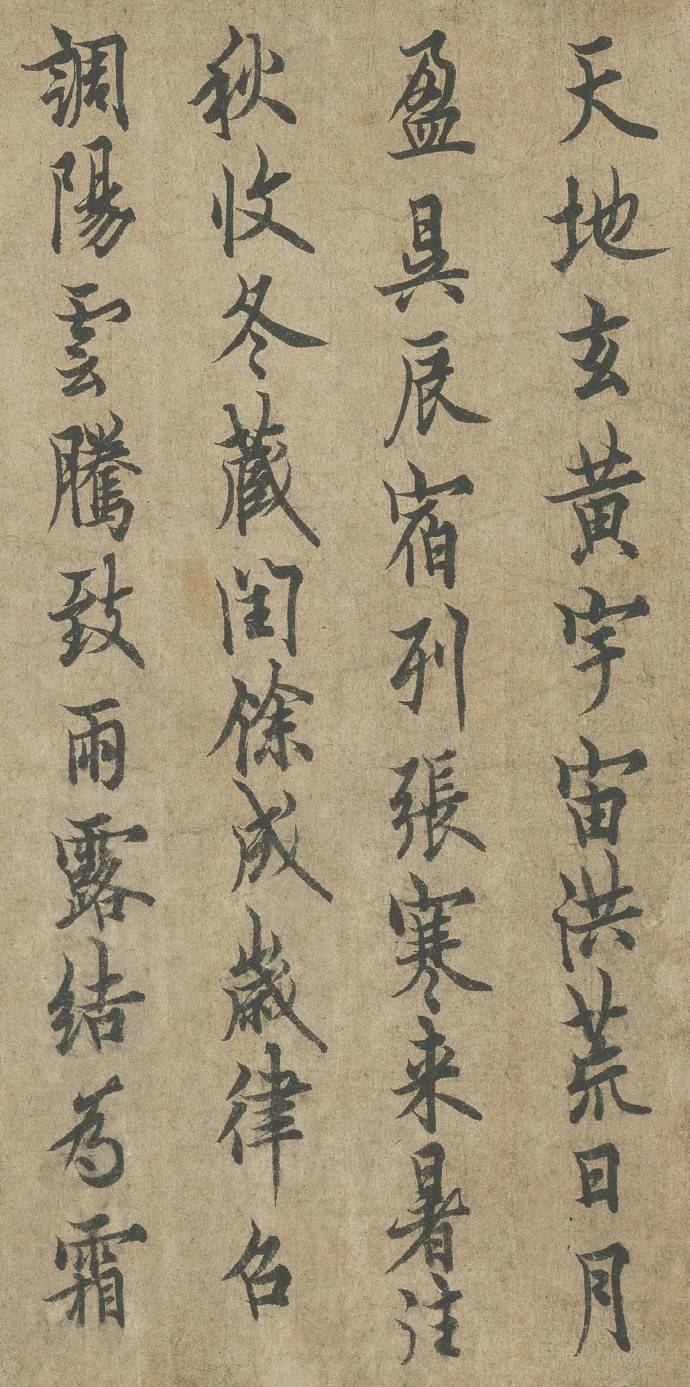 天地玄黃宇宙洪荒日月
盈昃辰宿列張寒来暑往
秋收冬蔵閏餘成歲律召
調陽雲騰致雨露結為霜